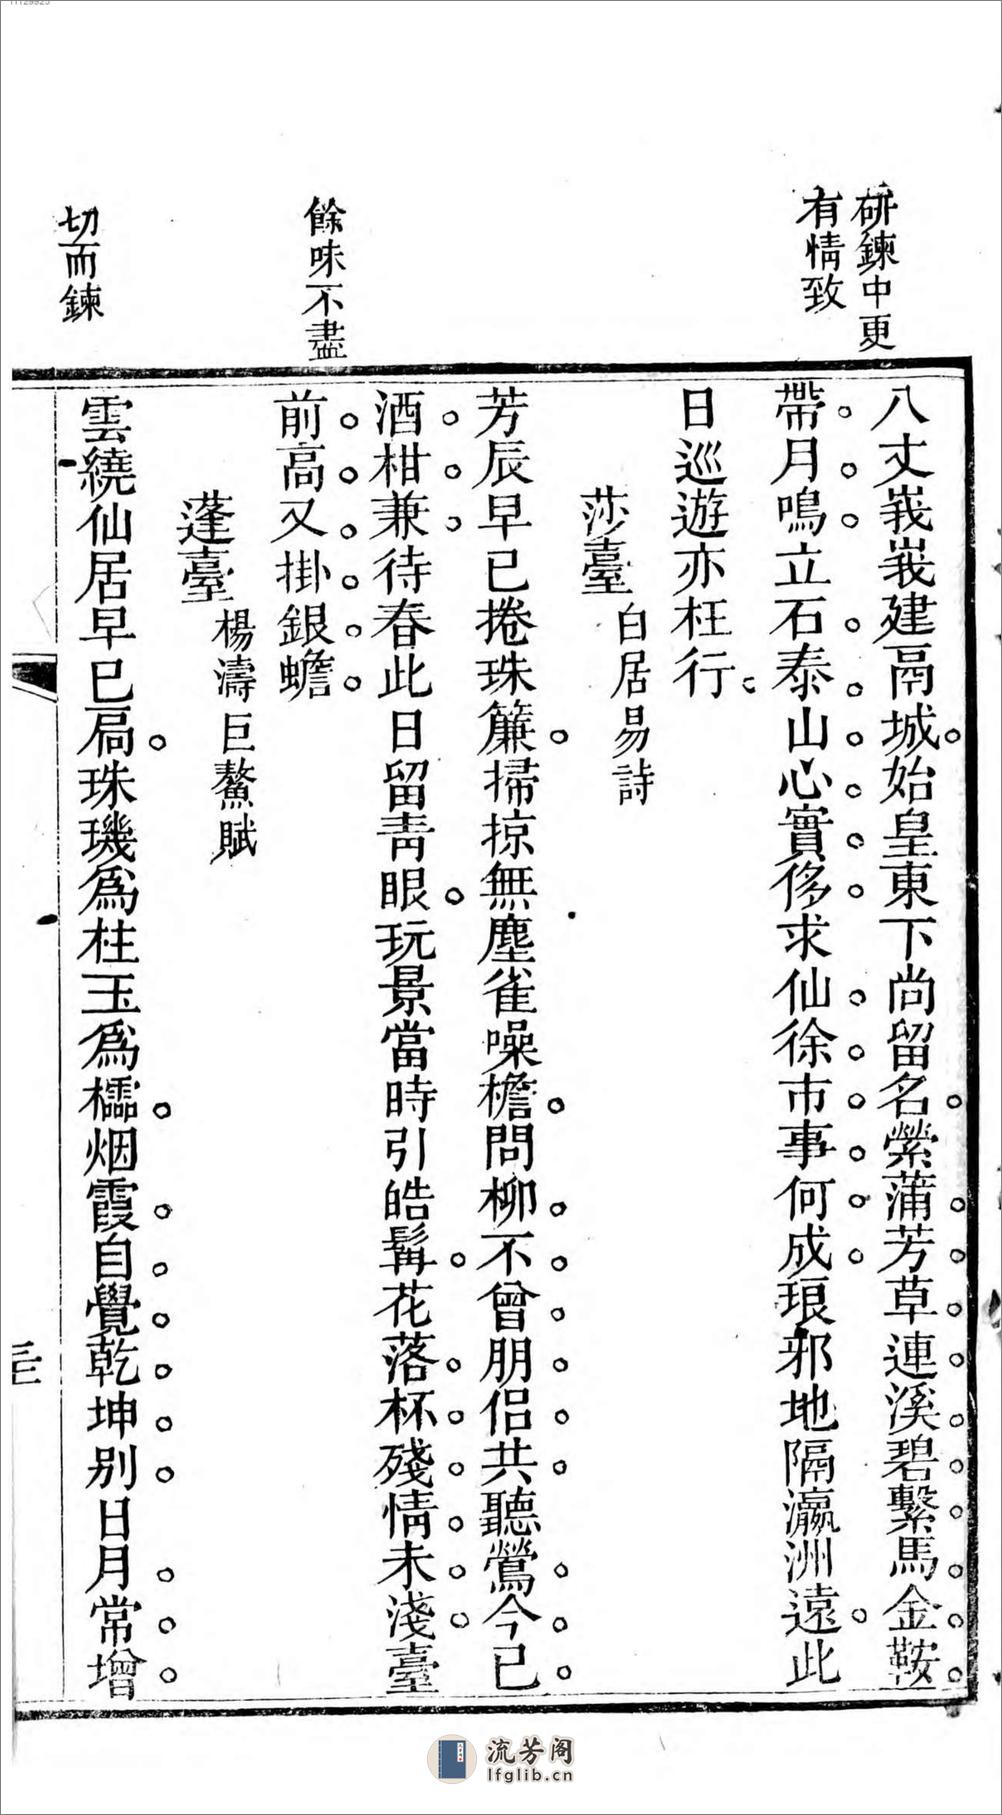 研鍊中更
有情致
餘味不盡
切而鍊
八丈峩峩建鬲城始皇東下尚留名縈蒲芳草連溪碧繫馬金鞍
帶月鳴立石泰山心實侈求仙徐巿事何成琅邪地隔瀛洲遠此
日巡遊亦枉行
莎臺 白居易詩
芳辰早已捲珠簾掃掠無塵雀噪檐問柳不曾朋侶共聽鶯今已
酒柑兼待春此日留青眼玩景當時引皓髯花落杯殘情未淺臺
前高又掛銀蟾
蓬臺 楊濤巨鰲賦
雲繞仙居早已扃珠璣爲柱玉爲櫺烟霞自覺乾坤別日月常增
流芳阁
lfglib.cn